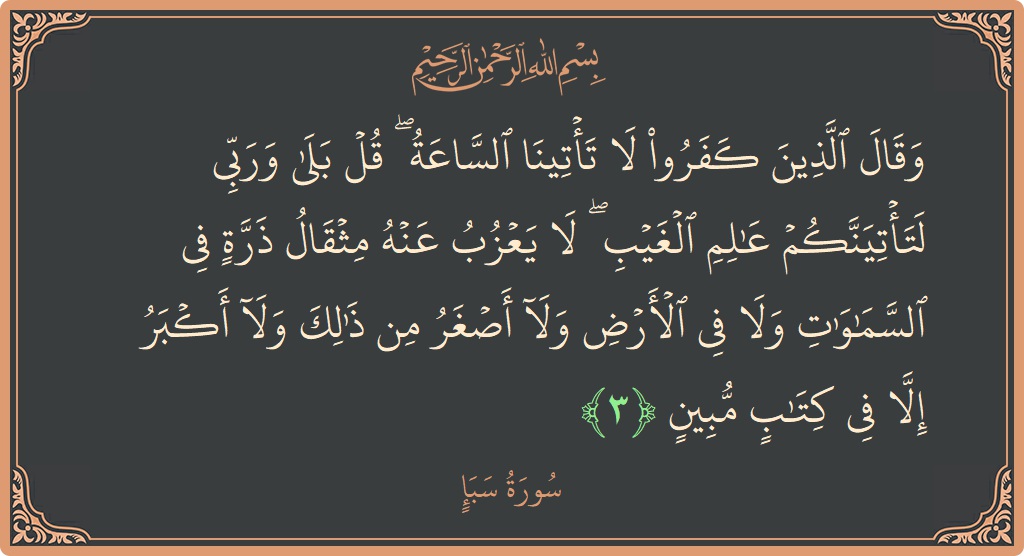 بِسْمِ اللهِ الرَّحْمٰنِ الرَّحِيْمِ
وَقَالَ ٱلَّذِينَ كَفَرُوا۟ لَا تَأْتِينَا ٱلسَّاعَةُ ۖ قُلْ بَلَىٰ وَرَبِّى
لَتَأْتِيَنَّكُمْ عَـٰلِمِ ٱلْغَيْبِ ۖ لَا يَعْزُبُ عَنْهُ مِثْقَالُ ذَرَّةٍ فِى
ٱلسَّمَـٰوَٰتِ وَلَا فِى ٱلْأَرْضِ وَلَآ أَصْغَرُ مِن ذَٰلِكَ وَلَآ أَكْبَرُ
إِلَّا فِى كِتَـٰبٍ مُّبِينٍ ﴿٣﴾
سُورَةُ سَبَإٍ